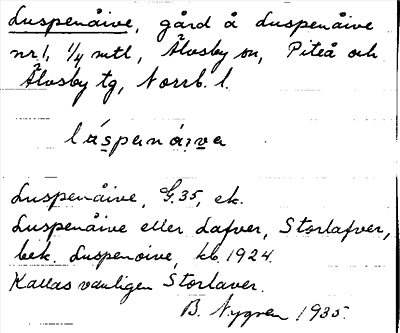 Luspenåive, gård å Luspenåive
nr 1, 1/4 mtl, Älvsby sn, Piteå och
Älvsby tg, Norrb. l.
láspenáive
Luspenåive, G. 35, ek.
Luspenåive eller Lafver, Storlafver,
bek. Luspenoive, kb. 1924.
Kallas vanligen Storlaver.
B. Nygren 1935.